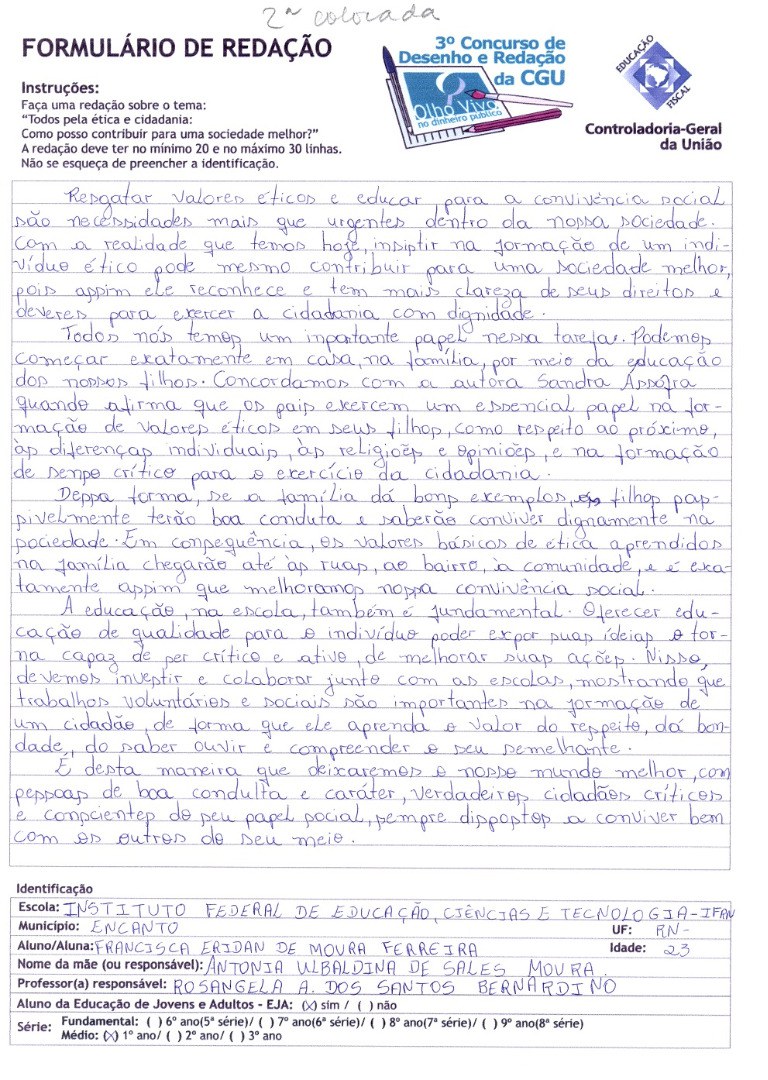 2ª colocada
FORMULÁRIO DE REDAÇÃO
3º Concurso de
Desenho e Redação
da CGU
Olho Vivo
no dinheiro público
EDUCAÇÃO
FISCAL
Controladoria-Geral
da União
Instruções:
Faça uma redação sobre o tema:
“Todos pela ética e cidadania:
Como posso contribuir para uma sociedade melhor?”
A redação deve ter no mínimo 20 e no máximo 30 linhas.
Não se esqueça de preencher a identificação.
Resgatar valores éticos e educar para a convivência social
são necessidades mais que urgentes dentro da nossa sociedade.
Com a realidade que temos hoje, insistir na formação de um indi-
víduo ético pode mesmo contribuir para uma sociedade melhor,
pois assim ele reconhece e tem mais clareza de seus direitos e
deveres para exercer a cidadania com dignidade.
Todos nós temos um inportante papel nessa tarefas. Podemos
começar exatamente em casa, na família, por meio da educação
dos nossos filhos. Concordamos com a autora Sandra Assofra
quando afirma que os pais exercem um essencial papel na for-
mação de valores éticos em seus filhos, como respeito ao próximo,
às diferenças individuais, às religiões e opiniões, e na formação
de senso crítico para o exercício da cidadania.
Dessa forma, se a família dá bons exemplos, os filhos pas-
sivelmente terão boa conduta e saberão conviver dignamente na
sociedade. Em consequência, os valores básicos de ética aprendidos
na família chegarão até às ruas, ao bairro, à comunidade, e é exa-
tamente assim que melhoramos nossa convivência social.
A educação, na escola, também é fundamental. Oferecer edu-
cação de qualidade para o indivíduo poder expor suas ideias o tor-
na capaz de ser crítico e ativo, de melhorar suas ações. Nisso,
devemos investir e colaborar junto com as escolas, mostrando que
trabalhos voluntários e sociais são importantes na formação de
um cidadão, de forma que ele aprenda o valor do respeito, da bon-
dade, do saber ouvir e compreender o seu semelhante.
É desta maneira que deixaremos o nosso mundo melhor, com
pessoas de boa conduta e caráter, verdadeiros cidadãos críticos
e conscientes do seu papel social, sempre dispostos a conviver bem
com os outros do seu meio.
Identificação
Escola: INSTITUTO FEDERAL DE EDUCAÇÃO, CIÊNCIAS E TECNOLOGIA-IFRN
Município: ENCANTO UF: RN-
Aluno/Aluna: FRANCISCA ERIDAN DE MOURA FERREIRA Idade: 23
Nome da mãe (ou responsável): ANTONIA ULBALDINA DE SALES MOURA.
Professor(a) responsável: ROSANGELA A. DOS SANTOS BERNARDINO
Aluno da Educação de Jovens e Adultos - EJA: (X) sim / ( ) não
Série: Fundamental: ( ) 6º ano(5ª série)/ ( ) 7º ano(6ª série)/ ( ) 8º ano(7ª série)/ ( ) 9º ano(8ª série)
Médio: (X) 1º ano/ ( ) 2º ano/ ( ) 3º ano